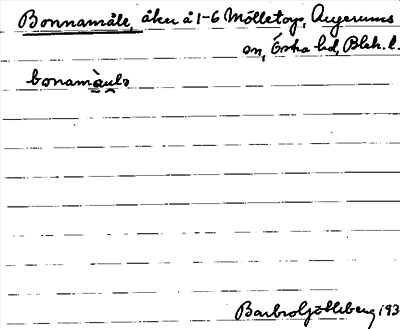 Bonnamåle, åker å 1-6 Mölletorp, Augerums
sn, Östra hd, Blek. l.
bonamàulə
Barbro Götleberg 193